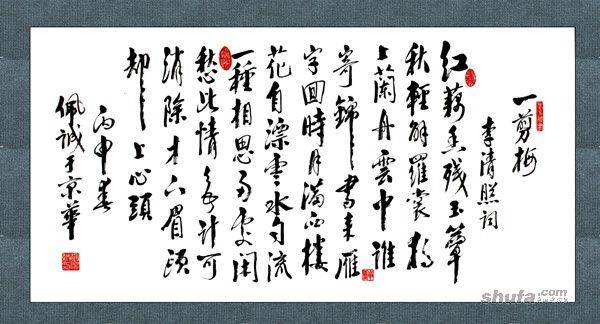 一剪梅
李清照詞
紅藕香残玉簟
秋輕解羅裳獨
上蘭舟雲中誰
寄錦書来雁
字回時月滿西樓
花自漂零水自流
一種相思兩處閑
愁此情無計可
消除才下眉頭
却上心頭
丙申春
佩誠于京華
shufa.com